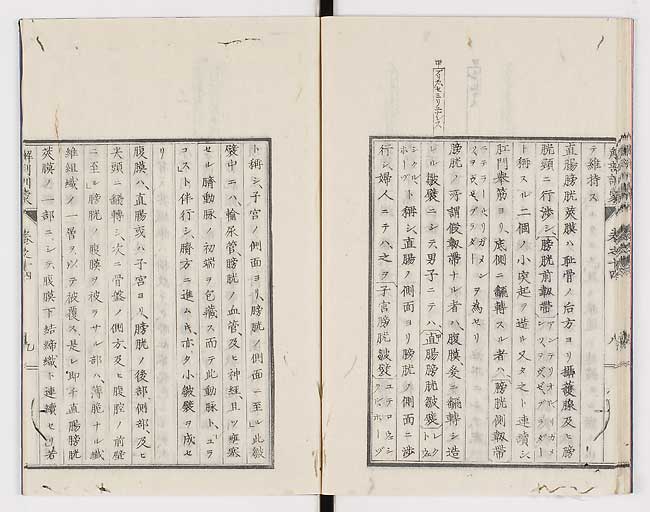 テ維持ス
直腸膀胱莢膜ハ耻骨ノ后方ヨリ攝護腺及ヒ膀
胱頸ニ行渉シ膀胱前靱帶
ト稱スル二個ノ小突起ヲ造ル又タ之ト連續シ
肛門擧筋ヨリ底側ニ飜轉スル者ハ膀胱側靱帶
ヲ為セリ
膀胱ノ所謂假靱帶ナル者ハ腹膜爰ニ飜轉シ造
レル皺襞ニシテ男子ニテハ直腸膀胱皺襞
ト稱シ直腸ノ側面ヨリ膀胱ノ側面ニ渉
行シ婦人ニテハ之ヲ子宮膀胱皺襞
ト稱シ子宮ノ側面ヨリ膀胱ノ側面ニ至ル此皺
襞中ニハ輸尿管膀胱ノ血管及ヒ神經且ツ壅塞
セル臍動脉ノ初端ヲ包藏ス而テ此動脉ト
ト伴行シ臍方ニ進ム亦タ小皺襞ヲ成セ
リ
腹膜ハ直腸或ハ子宮ヨリ膀胱ノ後部側部及ヒ
尖頭ニ飜轉シ次テ骨盤ノ側方及ヒ腹腔ノ前壁
ニ至ル膀胱ノ腹膜ヲ被ラサル部ハ薄脆ナル纖
維組織ノ一層ヲ以テ被覆ス是レ即チ直腸膀胱
莢膜ノ一部ニシテ腹膜下結締織ト連續セリ若
解剖訓蒙 卷之十四 九